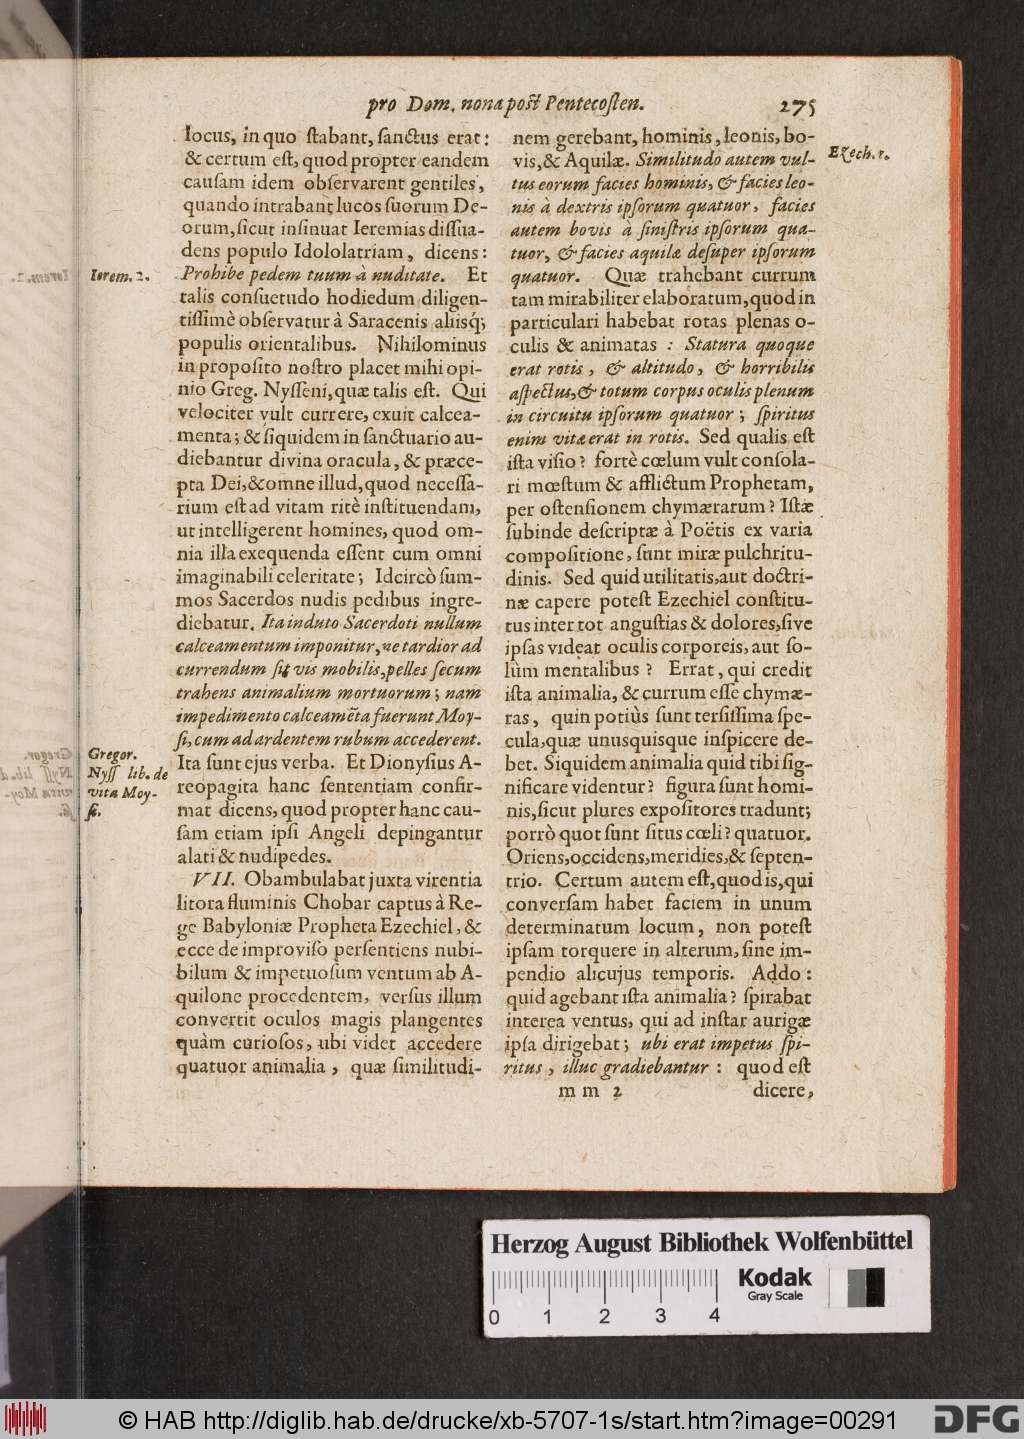 pro Dom. nona post Pentecosten. 275
locus, in quo ſtabant, ſanctus erat:
& certum eſt, quod propter eandem
cauſam idem obſervarent gentiles,
quando intrabant lucos ſuorum De-
orum, ſicut inſinuat Ieremias diſſua-
dens populo Idololatriam, dicens:
Prohibe pedem tuum à nuditate. Et
talis conſuetudo hodiedum diligen-
tiſſimè obſervatur à Saracenis aliisq́;
populis orientalibus. Nihilominus
in propoſito noſtro placet mihi opi-
nio Greg. Nyſſeni, quæ talis eſt. Qui
velociter vult currere, exuit calcea-
menta; & ſiquidem in ſanctuario au-
diebantur divina oracula, & præce-
pta Dei, & omne illud, quod neceſſa-
rium eſt ad vitam ritè inſtituendam,
ut intelligerent homines, quod om-
nia illa exequenda eſſent cum omni
imaginabili celeritate; Idcircò ſum-
mos Sacerdos nudis pedibus ingre-
diebatur. Ita induto Sacerdoti nullum
calceamentum imponitur, ne tardior ad
currendum ſit vis mobilis, pelles ſecum
trahens animalium mortuorum; nam
impedimento calceamẽta fuerunt Moy-
ſi, cum ad ardentem rubum accederent.
Ita ſunt ejus verba. Et Dionyſius A-
reopagita hanc ſententiam confir-
mat dicens, quod propter hanc cau-
ſam etiam ipſi Angeli depingantur
alati & nudipedes.
VII. Obambulabat juxta virentia
litora fluminis Chobar captus à Re-
ge Babyloniæ Propheta Ezechiel, &
ecce de improviſo perſentiens nubi-
bilum & impetuoſum ventum ab A-
quilone procedentem, verſus illum
convertit oculos magis plangentes
quàm curioſos, ubi videt accedere
quatuor animalia, quæ ſimilitudi-
Ierem. 2.
Gregor.
Nyſſ lib. de
vita Moy-
ſi.
nem gerebant, hominis, leonis, bo-
vis, & Aquilæ. Similitudo autem vul-
tus eorum facies hominis, & facies leo-
nis à dextris ipſorum quatuor, facies
autem bovis à ſiniſtris ipſorum qua-
tuor, & facies aquilæ deſuper ipſorum
quatuor. Quæ trahebant currum
tam mirabiliter elaboratum, quod in
particulari habebat rotas plenas o-
culis & animatas: Statura quoque
erat rotis, & altitudo, & horribilis
aſpectus, & totum corpus oculis plenum
in circuitu ipſorum quatuor; ſpiritus
enim vitæ erat in rotis. Sed qualis eſt
iſta viſio? fortè cœlum vult conſola-
ri mœſtum & afflictum Prophetam,
per oſtenſionem chymærarum? Iſtæ
ſubinde deſcriptæ à Poëtis ex varia
compoſitione, ſunt miræ pulchritu-
dinis. Sed quid utilitatis, aut doctri-
næ capere poteſt Ezechiel conſtitu-
tus inter tot anguſtias & dolores, ſive
ipſas videat oculis corporeis, aut ſo-
lùm mentalibus? Errat, qui credit
iſta animalia, & currum eſſe chymæ-
ras, quin potiùs ſunt terſiſſima ſpe-
cula, quæ unusquisque inſpicere de-
bet. Siquidem animalia quid tibi ſig-
nificare videntur? figura ſunt homi-
nis, ſicut plures expoſitores tradunt;
porrò quot ſunt ſitus cœli? quatuor.
Oriens, occidens, meridies, & ſepten-
trio. Certum autem eſt, quod is, qui
converſam habet faciem in unum
determinatum locum, non poteſt
ipſam torquere in alterum, ſine im-
pendio alicujus temporis. Addo:
quid agebant iſta animalia? ſpirabat
interea ventus, qui ad inſtar aurigæ
ipſa dirigebat; ubi erat impetus ſpi-
ritus, illuc gradiebantur: quod eſt
Ezech. 1.
m m 2 dicere,
Herzog August Bibliothek Wolfenbüttel
0 1 2 3 4
Kodak
Gray Scale
© HAB http://diglib.hab.de/drucke/xb-5707-1s/start.htm?image=00291
DFG